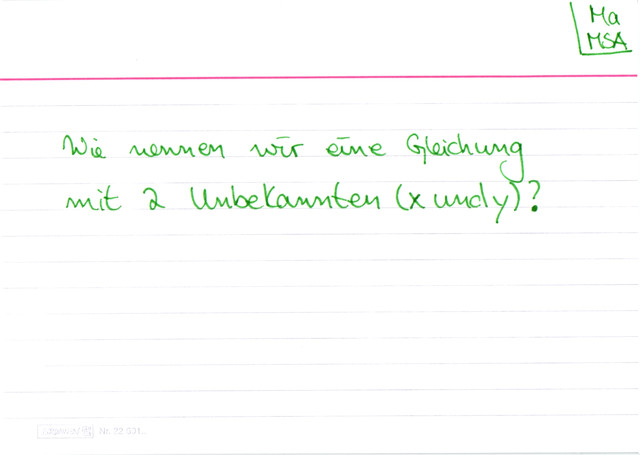 Ma
MSA
Wie nennen wir eine Gleichung
mit 2 Unbekannten (x und y)?